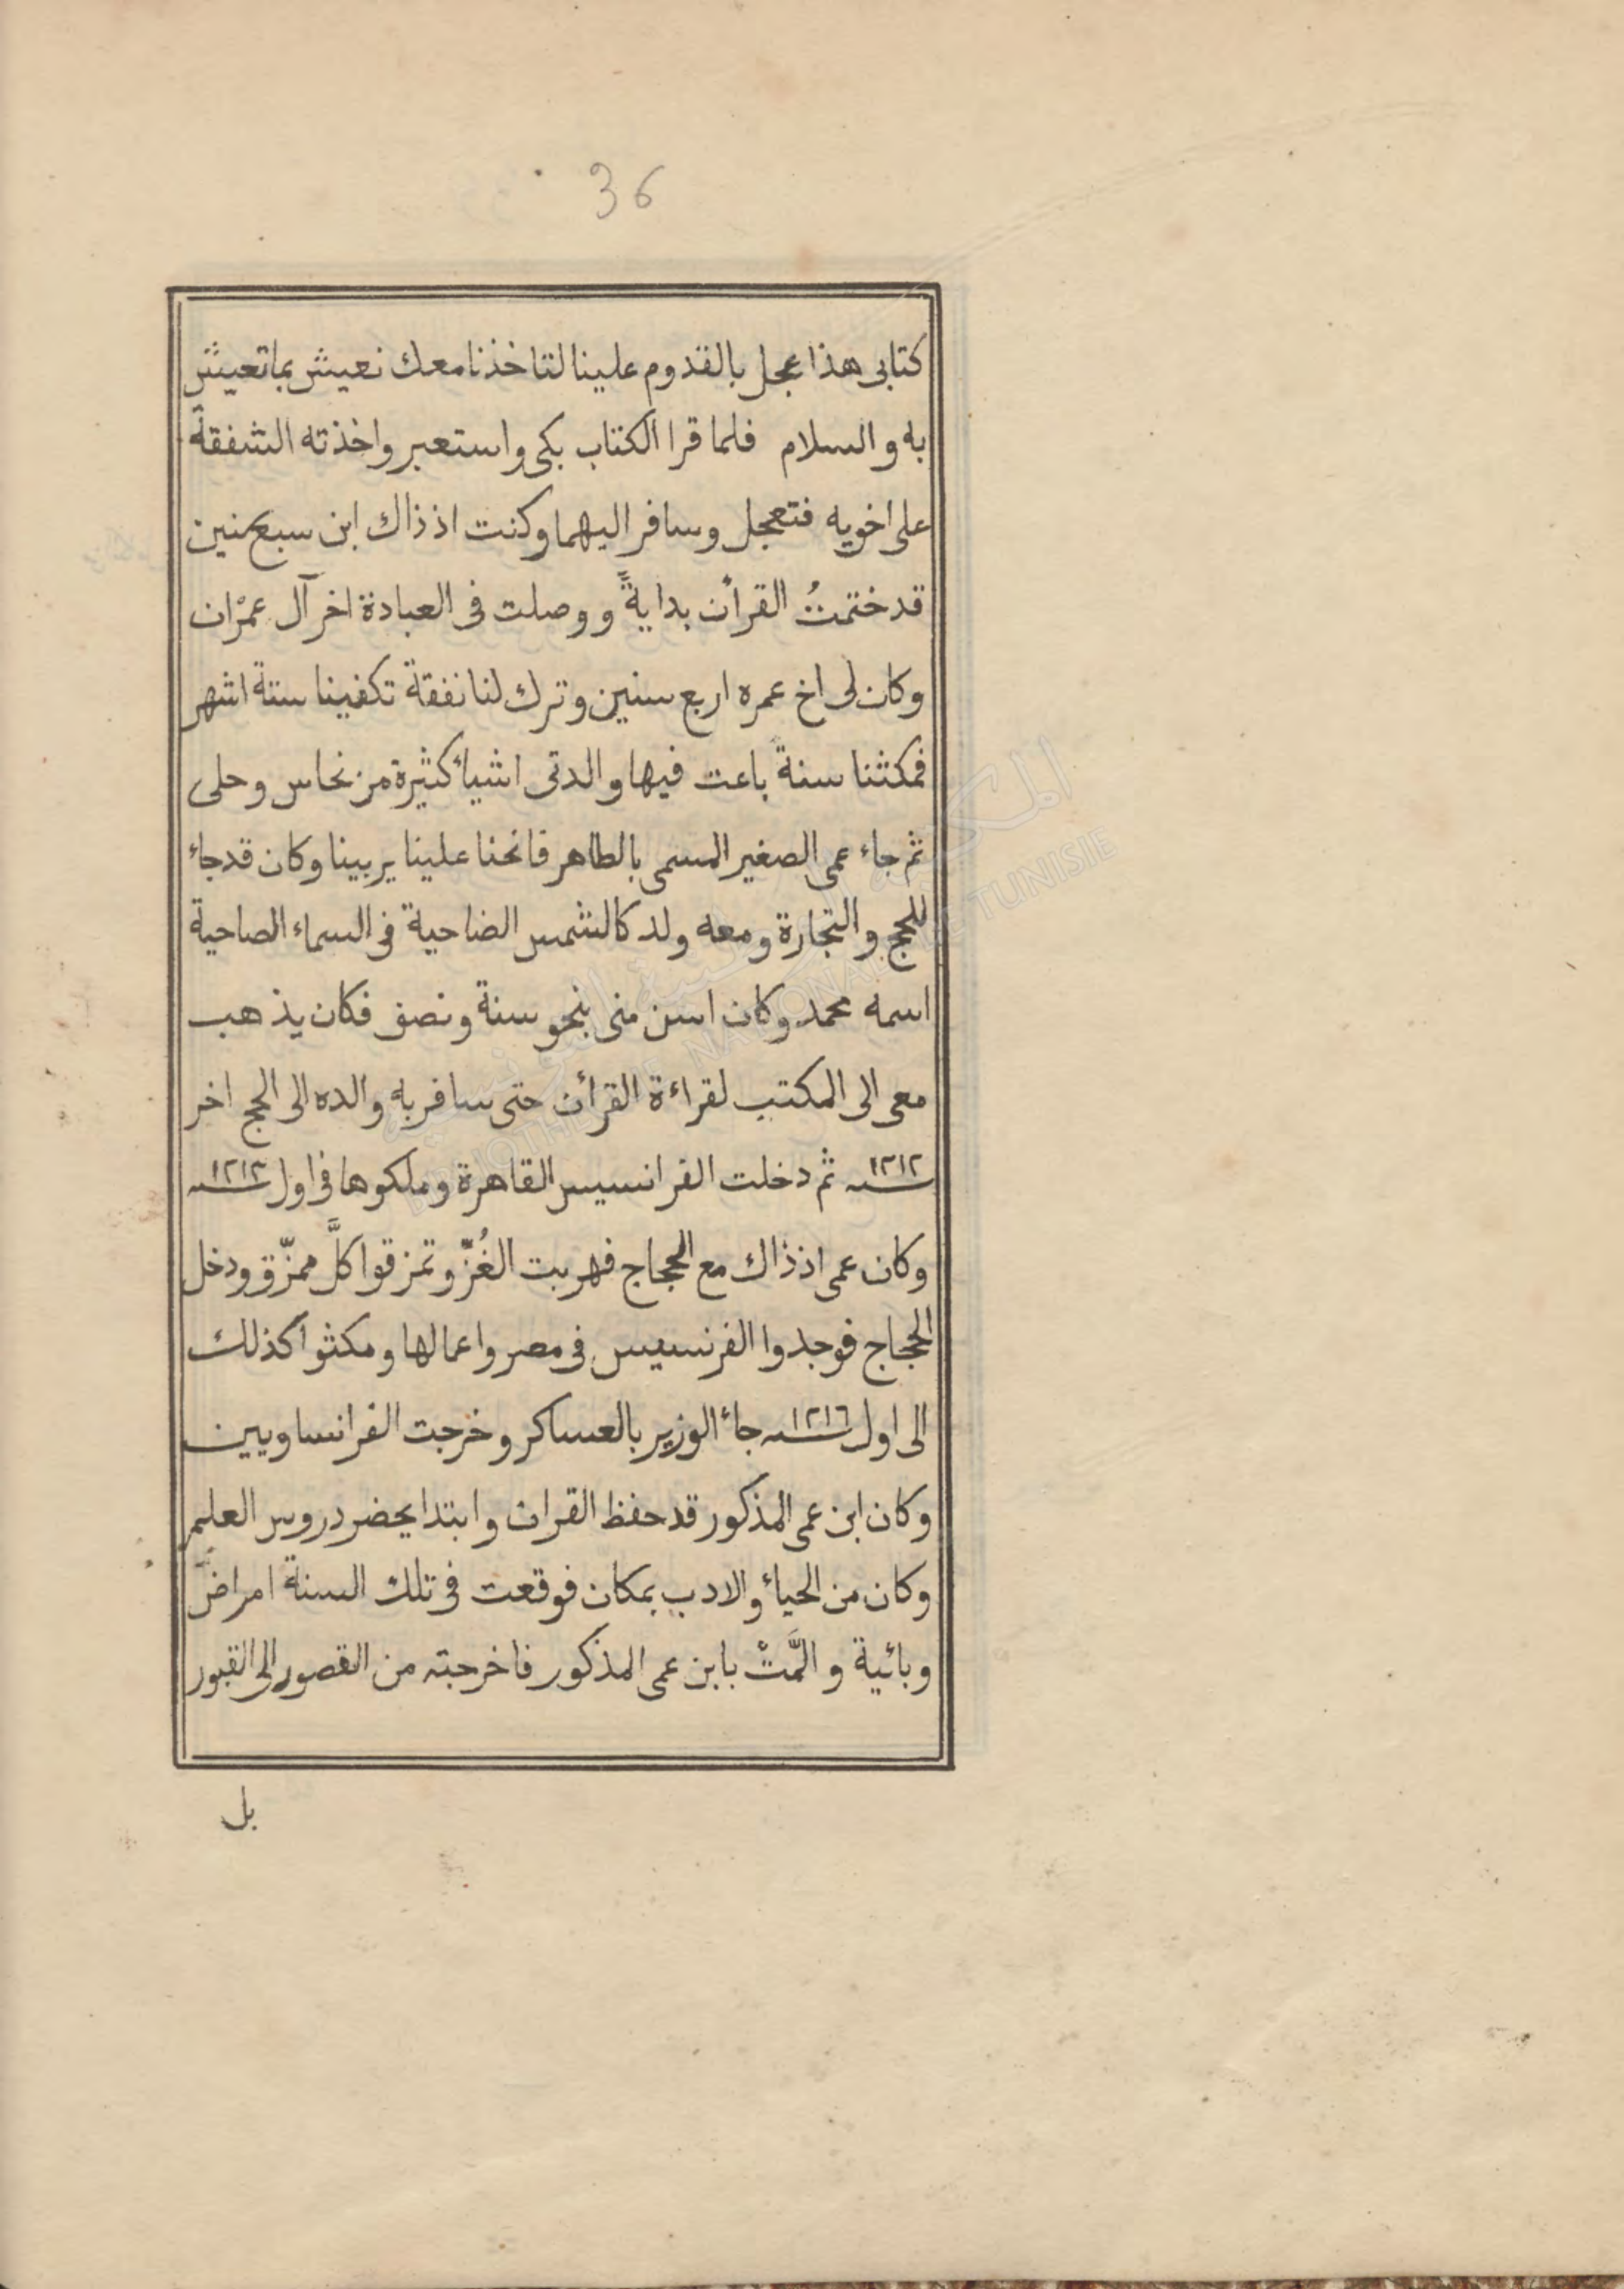 36
كتابى هذا عجل بالقدوم علينا لتاخذنا معك نعيش بما تعيش
به والسلام فلما قرا الكتاب بكى واستعبر واخذته الشفقة
على اخويه فتعجل وسافر اليهما وكنت اذ ذاك ابن سبع سنين
قد ختمتُ القرأن بدايةً ووصلت فى العبادة اخر آل عمْران
وكان لى اخ عمره اربع سنين وترك لنا نفقة تكفينا ستة اشهر
فمكثنا سنة باعت فيها والدتى اشيأ كثيرة من نحاس وحلى
ثم جاء عمى الصغير المسمى بالطاهر فانحنا علينا يربينا وكان قد جاء
للحج والتجارة ومعه ولد كالشمس الضاحية فى السماء الصاحية
اسمه محمد وكان اسن منى بنحو سنة ونصف فكان يذهب
معى الى المكتب لقراءة القرأن حتى سافر به والده الى الحج اخر
سنه ١٢١٢ ثم دخلت الفرانسيس القاهرة وملكوها فى اول سنه ١٢١٣
وكان عمى اذ ذاك مع الحجاج فهربت الغُزّ وتمزقوا كلَّ ممزّق ودخل
الحجاج فوجدوا الفرنسيس فى مصر واعمالها ومكثوا كذلك
الى اول سنه ١٢١٦ جأ الوزير بالعساكر وخرجت الفرانساويين
وكان ابن عمى المذكور قد حفظ القران وابتدا يحضر دروس العلم
وكان من الحيأ والادب بمكان فوقعت فى تلك السنة امراضٌ
وبائية والمَّتْ بابن عمى المذكور فاخرجته من القصور الى القبور
بل
المكتبة الوطنية التونسية
BIBLIOTHEQUE NATIONALE DE TUNISIE